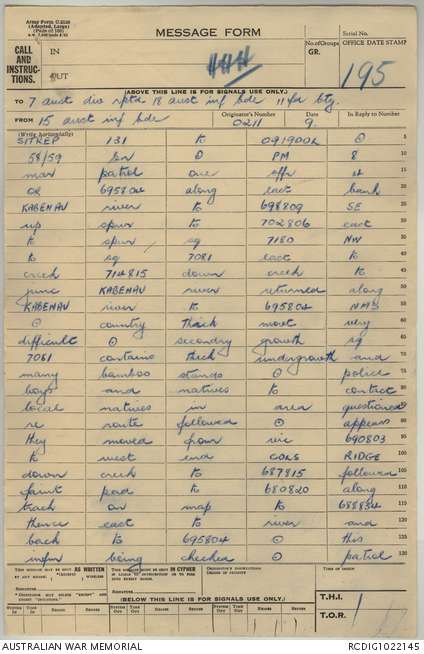 Army Form C.2128
(Adapted, Large)
(Pads of 100)
MESSAGE FORM
Serial No.
CALL
AND
INSTRUC-
TIONS.
IN
OUT
No. of Groups
GR.
OFFICE DATE STAMP
195
(ABOVE THIS LINE IS FOR SIGNALS USE ONLY.)
TO 7 aust div rptd 18 aust inf bde 11 for bty.
Originator's Number Date In Reply to Number
FROM 15 aust inf bde 0211 9.
(Write horizontally)
SITREP 131 to 091900L ⊙ 5
58/59 bn ⊙ PM 8 10
man patrol one offr 15
OR 695804 along east bank 20
KABENAU river to 698809 SE 25
up spur to 702806 east 30
to spur sq 7180 NW 35
to sq 7081 east to 40
creek 714815 down creek to 45
junc KABENAU river returned along 50
KABENAU river to 695804 55
⊙ country thick most very 60
difficult ⊙ secondry growth sq 65
7081 contains thick undergrowth and 70
many bamboo stands ⊙ police 75
boys and natives to contact 80
local natives in area questioned 85
re route followed ⊙ appears 90
they moved from vic 690803 95
to west end CONS RIDGE 100
down creek to 687815 followed 105
faint pad to 680820 along 110
track on map to 688834 115
thence east to river and 120
back to 695804 ⊙ this 125
infm being checked ⊙ patrol 130
THIS MESSAGE MAY BE SENT AS WRITTEN
BY ANY MEANS. WIRELESS
IN CYPHER
Signature
(BELOW THIS LINE IS FOR SIGNALS USE ONLY.)
T.H.I.
T.O.R.
System In
Time In
Reader
Sender
System Out
Time Out
AUSTRALIAN WAR MEMORIAL
RCDIG1022145